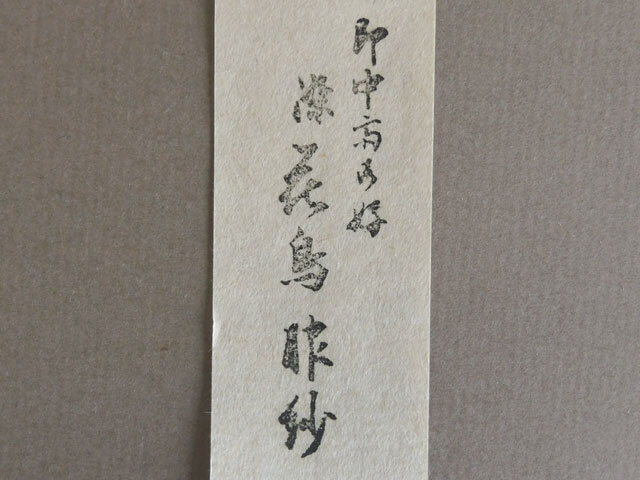 即中斎御好
花鳥服紗